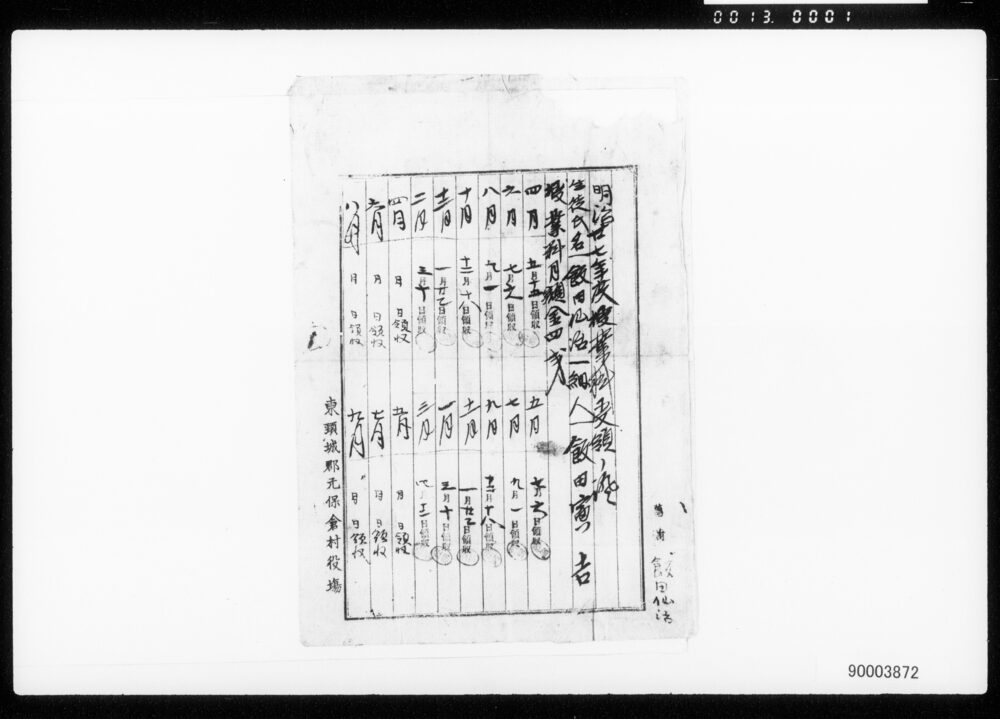 0013. 0001
明治廿七年度授業料受領証
生徒氏名 飯田仙治 納人 飯田寅吉
授業料月額金四戔
四月 五月十五日領収
五月 七月六日領収
六月 七月六日領収
七月 九月一日領収
八月 九月一日領収
九月 十二月十八日領収
十月 十二月十八日領収
十一月 一月廿七日領収
十二月 一月廿七日領収
一月 三月十日領収
二月 三月十日領収
三月 日領収
四月 月 日領收
五月 月 日領收
六月 月 日領收
七月 月 日領收
八月 月 日領收
九月 月 日領收
東頸城郡元保倉村役塲
飯田仙治
90003872